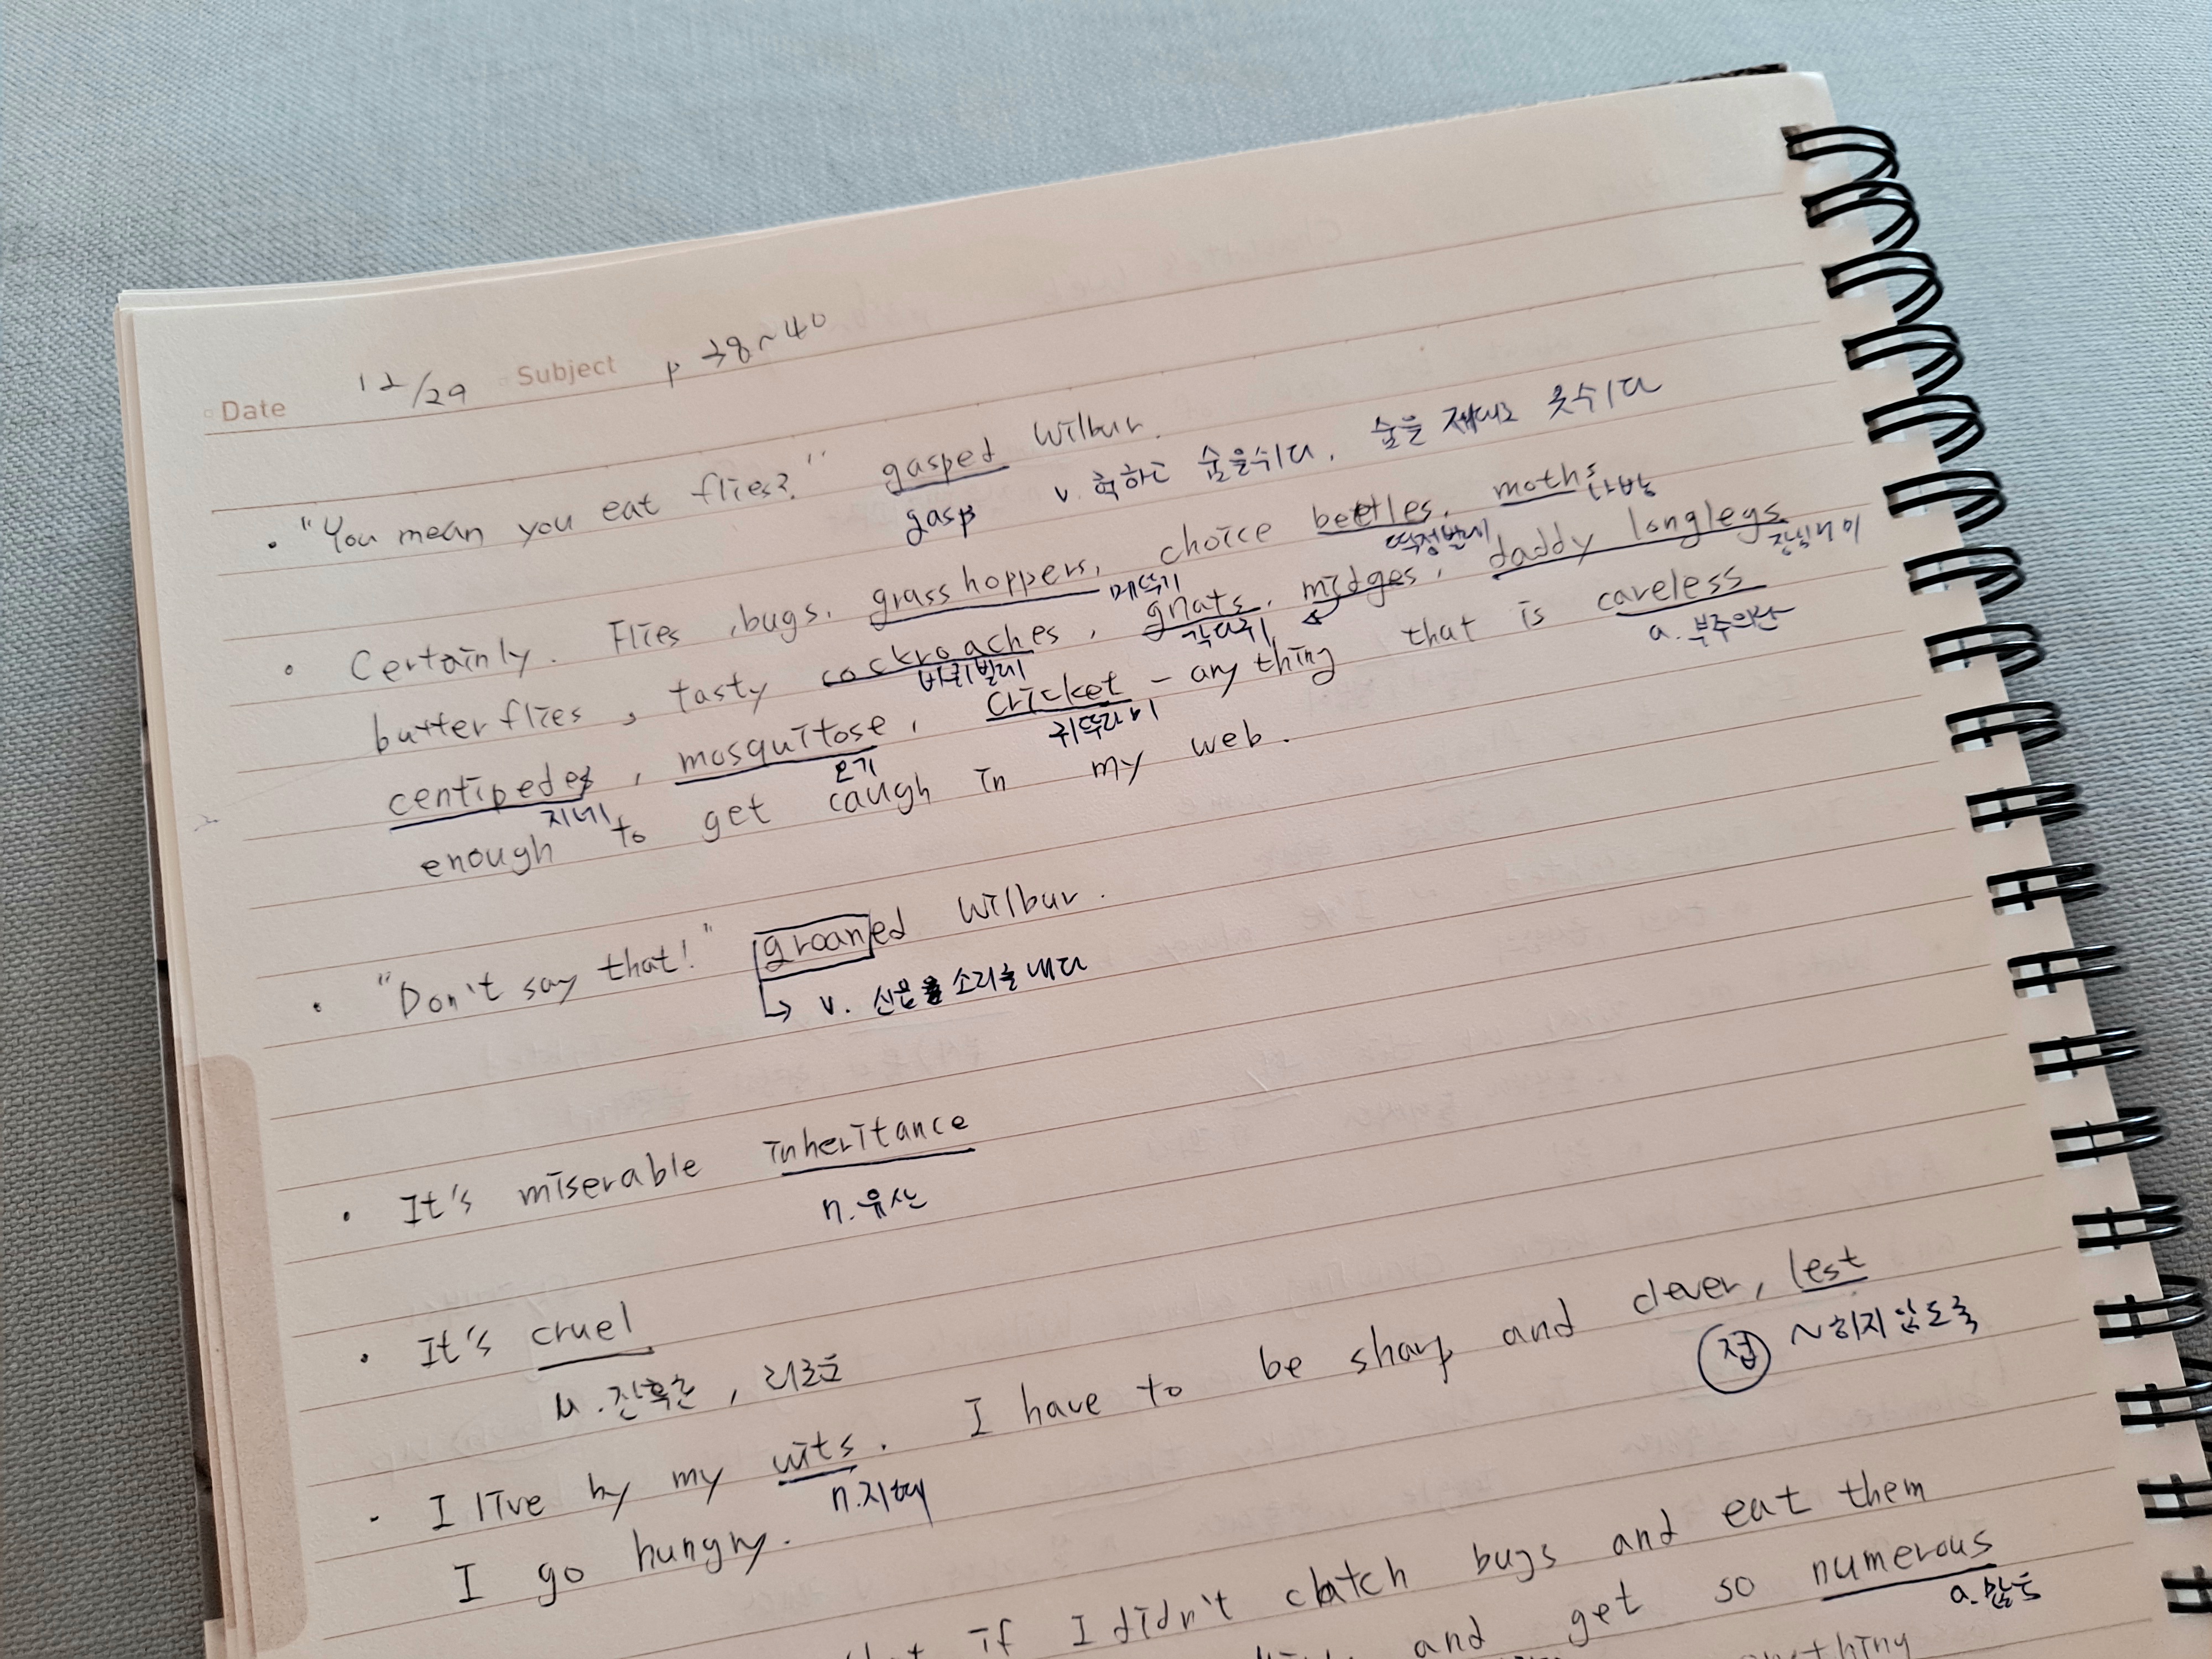 Date 12/29 Subject p 38~40
• "You mean you eat flies?" gasped Wilbur.
gasp v. 헉하고 숨을쉬다, 숨을 제대로 못쉬다
• Certainly. Flies, bugs, grasshoppers, choice beetles, moths
메뚜기 딱정벌레 나방
butterflies, tasty cockroaches, gnats, midges, daddy longlegs
바퀴벌레 각다귀 장님거미
centipedes, mosquitose, cricket - anything that is careless
지네 모기 귀뚜라미 a. 부주의한
enough to get caugh in my web.
• "Don't say that!" groaned Wilbur.
→ v. 신음을 소리를 내다
• It's miserable inheritance
n. 유산
• It's cruel
잔혹한,
• I live by my wits. I have to be sharp and clever, lest
n. 지혜 접 ~하지 않도록
I go hungry.
if I didn't catch bugs and eat them
and get so numerous
a. 많은